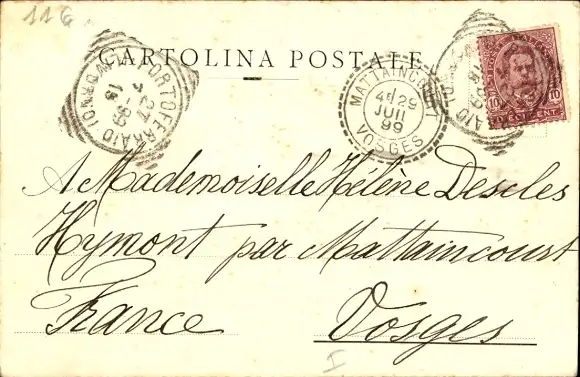 116
CARTOLINA POSTALE
PORTOFERRAIO
27
MATTAINCOURT
4E 29
JUIL
99
VOSGES
10
10
CENT
A Mademoiselle Hélène Descles
Hymont par Mattaincourt
France Vosges
I